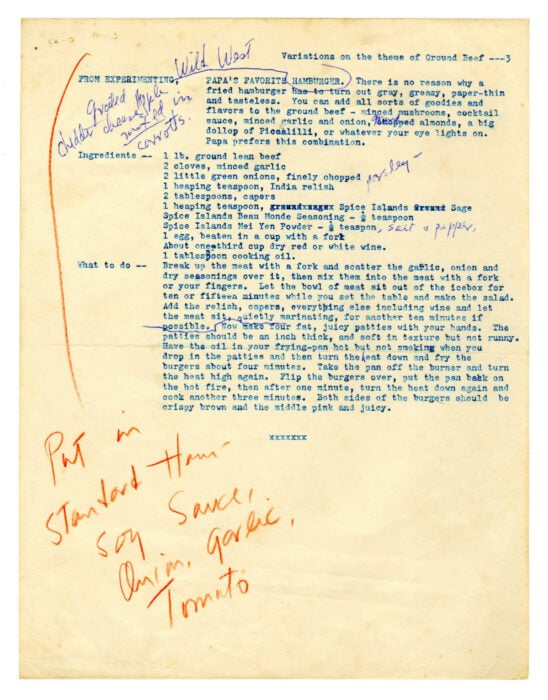 Variations on the theme of Ground Beef ---3
Wild West
FROM EXPERIMENTING, PAPA'S FAVORITE HAMBURGER. There is no reason why a
fried hamburger has to turn out gray, greasy, paper-thin
and tasteless. You can add all sorts of goodies and
flavors to the ground beef - minced mushrooms, cocktail
sauce, minced garlic and onion, chopped almonds, a big
dollop of Piccalilli, or whatever your eye lights on.
Papa prefers this combination.
grated apple
cheddar cheese
minced in
carrots.
Ingredients -- 1 lb. ground lean beef
2 cloves, minced garlic
2 little green onions, finely chopped
parsley
1 heaping teaspoon, India relish
2 tablespoons, capers
1 heaping teaspoon, Spice Islands Sage
Spice Islands Beau Monde Seasoning - ½ teaspoon
Spice Islands Mei Yen Powder - ½ teaspoon, salt & pepper,
1 egg, beaten in a cup with a fork
About one third cup dry red or white wine.
1 tablespoon cooking oil.
What to do -- Break up the meat with a fork and scatter the garlic, onion and
dry seasonings over it, then mix them into the meat with a fork
or your fingers. Let the bowl of meat sit out of the icebox for
ten or fifteen minutes while you set the table and make the salad.
Add the relish, capers, everything else including wine and let
the meat sit, quietly marinating, for another ten minutes if
possible. Now make four fat, juicy patties with your hands. The
patties should be an inch thick, and soft in texture but not runny.
Have the oil in your frying-pan hot but not smoking when you
drop in the patties and then turn the heat down and fry the
burgers about four minutes. Take the pan off the burner and turn
the heat high again. Flip the burgers over, put the pan back on
the hot fire, then after one minute, turn the heat down again and
cook another three minutes. Both sides of the burgers should be
crispy brown and the middle pink and juicy.
xxxxxxx
Put in
Standard Ham-
Soy Sauce,
Onion, garlic,
Tomato